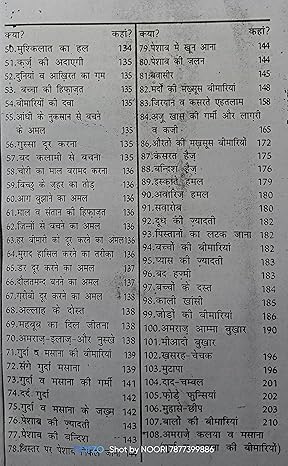 क्या? कहां?
50.मुश्किलात का हल 134
51.कर्ज़ की अदाएगी 135
52.दुनियां व आख़िरत का ग़म 135
53. बच्चा की हिफ़ाज़त 135
54.बीमारियों की दवा 135
55.आंधी के नुक़सान से बचने
के अमल 135
56.गुस्सा दूर करना 135
57.बद कलामी से बचना 135
58.चोरी का माल बरामद करना 136
59.बिच्छू के ज़हर का तोड़ 136
60.आग बुझाने का अमल 136
61.माल व संतान की हिफ़ाज़त 136
62.जिन्नों से बचने का अमल 136
63.हर बीमारी को दूर करने का अमल 136
64.मुराद हासिल करने का तरीक़ा 136
65.डर दूर करने का अमल 137
66.दौलतमन्द बनने का अमल 137
67.ग़रीबी दूर करने का अमल 137
68.अल्लाह के दोस्त 138
69.महबूब का दिल जीतना 138
70.अमराज़-इलाज-और नुस्ख़े 138
71.गुर्दा व मसाना की बीमारियां 139
72.संगे गुर्दा मसाना 139
73.गुर्दा व मसाना की गर्मी 141
74.दर्द गुर्दा 142
75.गुर्दा व मसाना के ज़ख़्म 142
76.पेशाब की ज़्यादती 143
77.पेशाब की बन्दिश 143
78.बिस्तर पर पेशाब
क्या? कहां?
79.पेशाब में ख़ून आना 144
80.पेशाब की जलन 144
81.बवासीर 145
82.मर्दों की मख़सूस बीमारियां 148
83.जिरयान व कसरते एहतलाम 158
84.अज़ू ख़ास की गर्मी और लागरी
व कजी 165
86.औरतों की मख़सूस बीमारियां 172
87.कसरत हैज़ 175
88.बन्दिश हैज़ 176
89.इस्क़ाते हमल 179
90.अवारिज़ हमल 180
91.सवारोब 180
92.दूध की ज़्यादती 182
93.पिस्तानों का लटक जाना 182
94.बच्चों की बीमारियां 182
95.प्यास की ज़्यादती 183
96.बद हज़मी 183
97.बच्चों के दस्त 184
98.काली खांसी 185
99.जोड़ों की बीमारियां 186
100.अमराज़ आम्मा बुख़ार 190
101.मीआदी बुख़ार
102.ख़सरह-चेचक 196
103.मुटापा 196
104.दाद-चम्बल 201
105.फोड़े फुन्सियां 202
106.मुहासे-छीप 203
107.बालों की बीमारियां 210
108.अमराज़े कलया व मसाना
की बीमारियां)
Shot by NOORI 7877399886